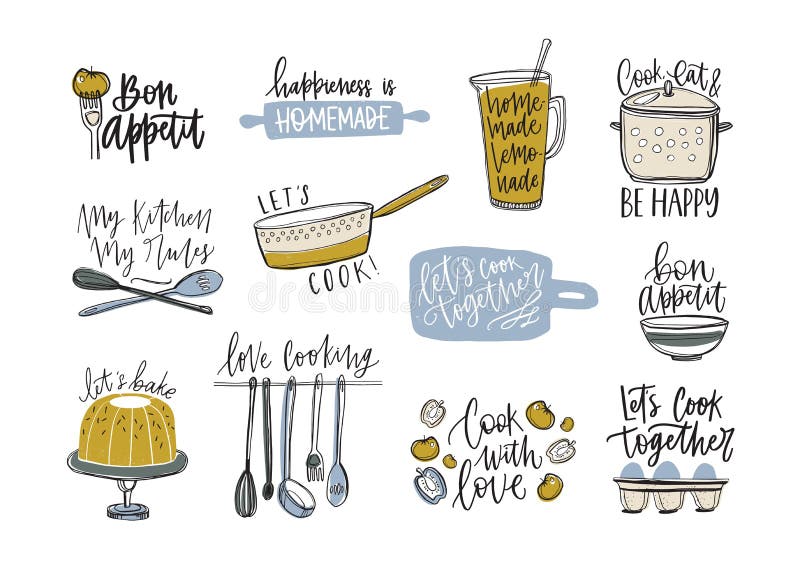 Bon
appetit
happieness is
HOMEMADE
home-
made
lemo-
nade
Cook, Eat &
BE HAPPY
My Kitchen
My Rules
LET'S
COOK!
let's cook
together
bon
appetit
let's bake
love cooking
Cook
with
love
Let's Cook
together
dreamstime